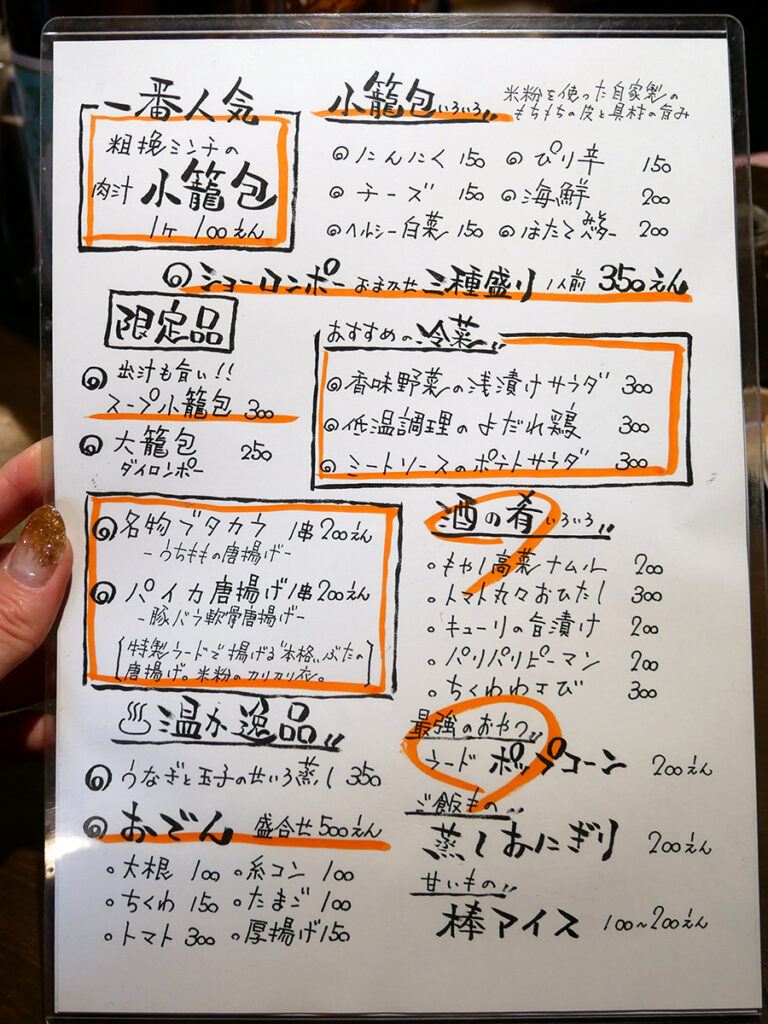 一番人気
粗挽ミンチの
肉汁 小籠包
1ケ 100えん
小籠包いろいろ!!
米粉を使った自家製の
もちもちの皮と具材の旨み
◎にんにく 150 ◎ぴり辛 150
◎チーズ 150 ◎海鮮 200
◎ヘルシー白菜 150 ◎ほたてみそバター 200
◎ショーロンポーおまかせ三種盛り 1人前 350えん
限定品
◎出汁も旨い!!
スープ小籠包 300
◎大籠包 250
ダイロンポー
おすすめの冷菜!!
◎香味野菜の浅漬けサラダ 300
◎低温調理のよだれ鶏 300
◎ミートソースのポテトサラダ 300
◎名物ブタカラ 1串200えん
-うちももの唐揚げ-
◎パイカ唐揚げ 1串200えん
-豚バラ軟骨唐揚げ-
[特製ラードで揚げる"本格"ぶたの
唐揚げ。米粉のカリカリ衣。]
酒の肴いろいろ!!
。もやし高菜ナムル 200
。トマト丸々おひたし 300
。キューリの旨漬け 200
。パリパリピーマン 200
。ちくわわさび 300
♨温か逸品!!
◎うなぎと玉子のせいろ蒸し 350
◎おでん 盛合せ500えん
。大根 100 。糸コン 100
。ちくわ 150 。たまご 100
。トマト 300 。厚揚げ150
最強のおやつ!!
ラード ポップコーン 200えん
ご飯もの!!
蒸しおにぎり 200えん
甘いもの!!
棒アイス 100~200えん